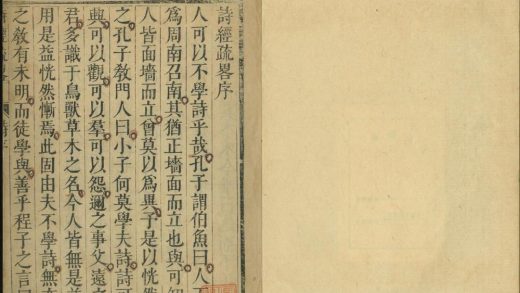 詩經疏畧序
人可以不學詩乎哉孔子謂伯魚曰人
爲周南召南其猶正墻面而立也與可
人皆面墻而立曾莫以爲異予是以恍然
之孔子教門人曰小子何莫學夫詩詩可
興可以觀可以羣可以怨邇之事父遠
君多識于鳥獸草木之名今人皆無是
用是益恍然慚焉此固由夫不學詩無
之敎有未明而徒學與善乎程子之言